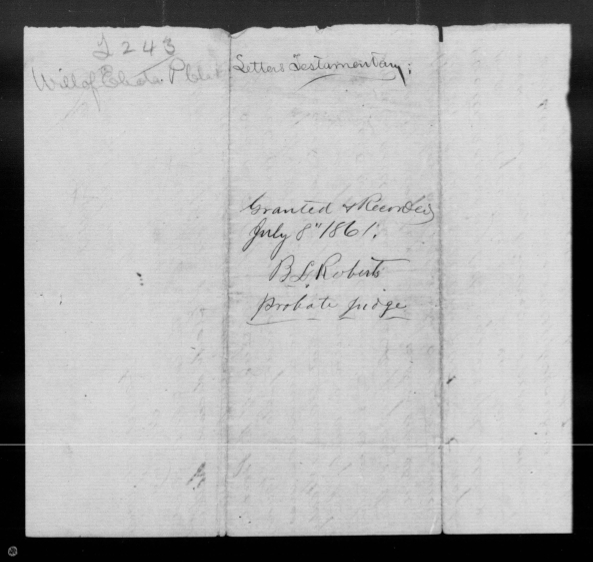 243
Will of
Letters Testamentary;
Granted & Recorded
July 8" 1861.
B L Roberts
Probate judge